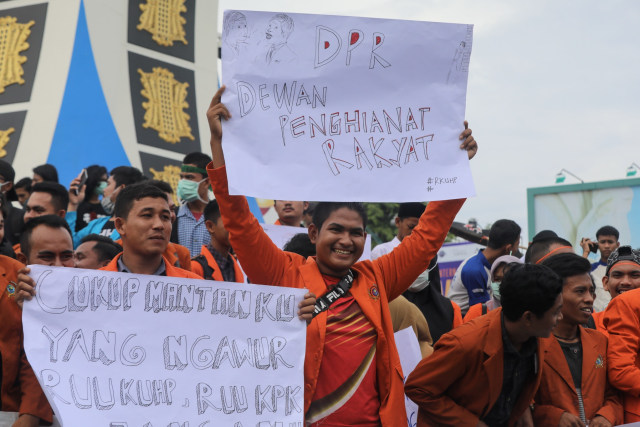 DPR
DEWAN
PENGHIANAT
RAKYAT
#RKUHP
#
CUKUP MANTANKU
YANG NGAWUR
RUUKUHP, RUU KPK
JANGAN